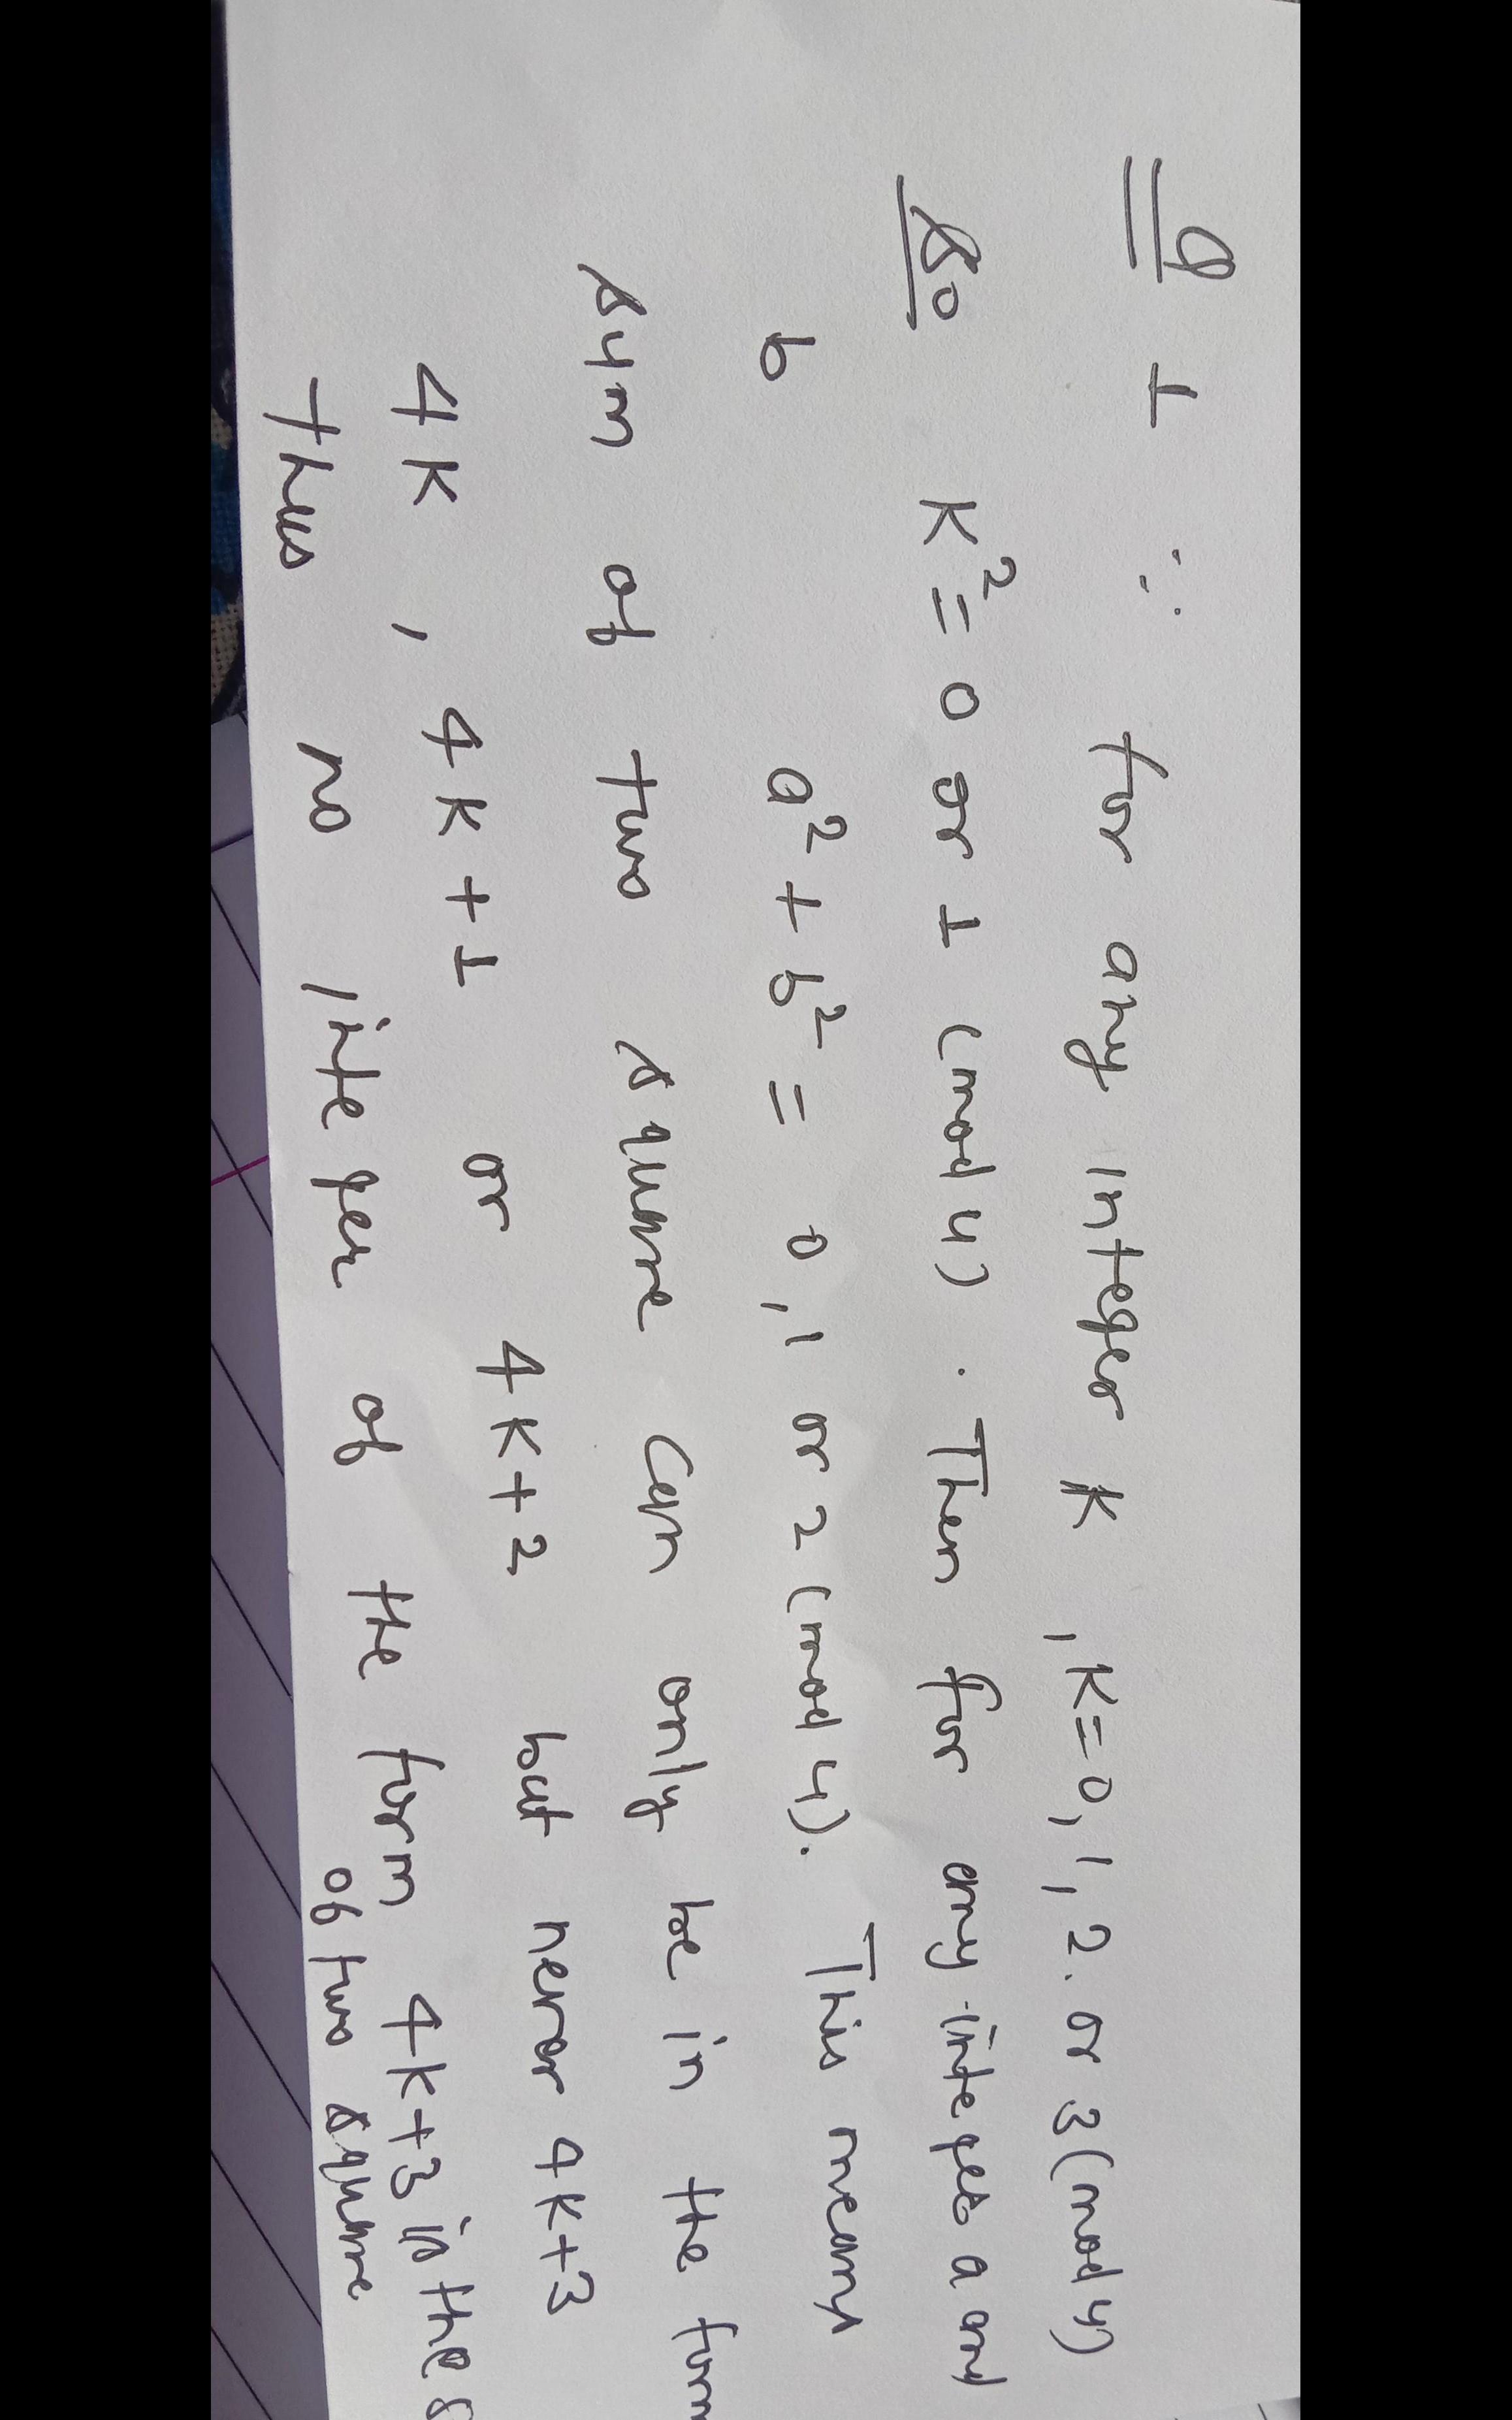 Q 1 ∵ for any integer K , K=0, 1, 2. or 3(mod 4)
So K² = 0 or 1 (mod 4) . Then for any inteqes a and
b a² + b² = 0 , 1 or 2 (mod 4). This means
sum of two square can only be in the form
4K , 4K+1 or 4K+2 but never 4K+3
thus no integer of the form 4K+3 is the
of two square